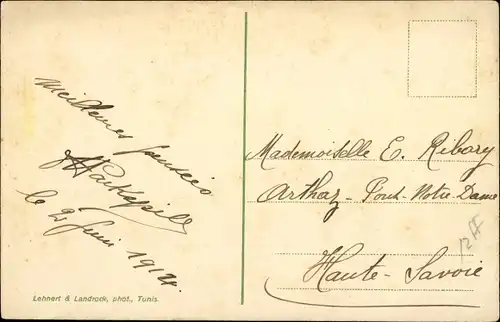 Meilleures pensées
le 2 Juin 1921.
Lehnert & Landrock, phot., Tunis.
Mademoiselle E. Ribary
Arthaz - Pont-Notre-Dame
Haute-Savoie
12 FF